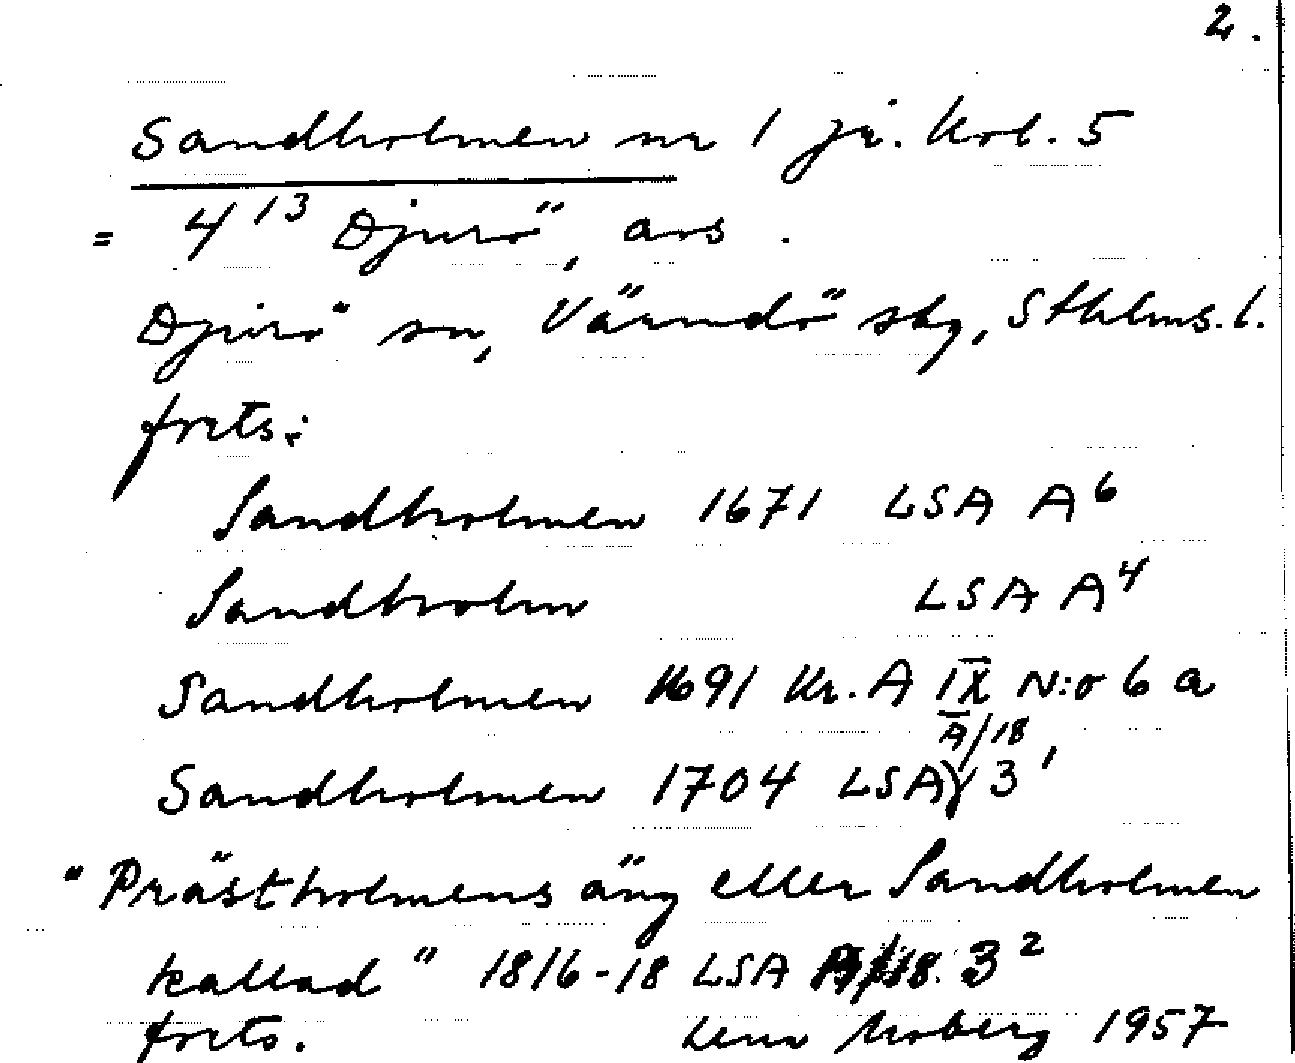 2.
Sandholmen nr 1 jr. kol. 5
= 4¹³ Djurö, avs.
Djurö sn, Värmdö skg, Sthlms. l.
forts.:
Sandholmen 1671 LSA A⁶
Sandholm LSA A⁴
Sandholmen 1691 Kr. A IX N:o 6 a
Sandholmen 1704 LSA A/18 3¹
"Prästholmens äng eller Sandholmen
kallad" 1816-18 LSA A/18. 3²
forts. Lena Moberg 1957